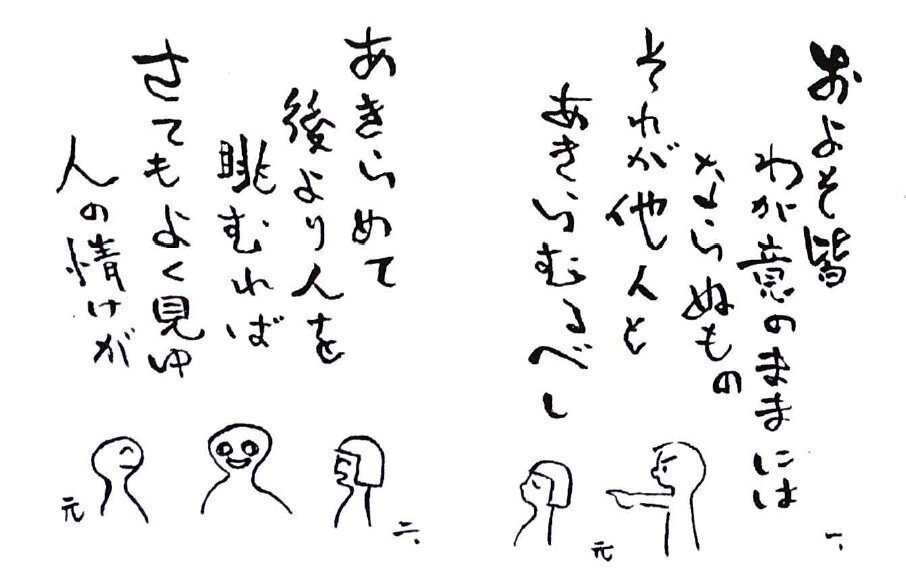 およそ皆
わが意のままには
ならぬもの
それが他人と
あきらむるべし
一、
元
あきらめて
後より人を
眺むれば
さてもよく見ゆ
人の情けが
二、
元